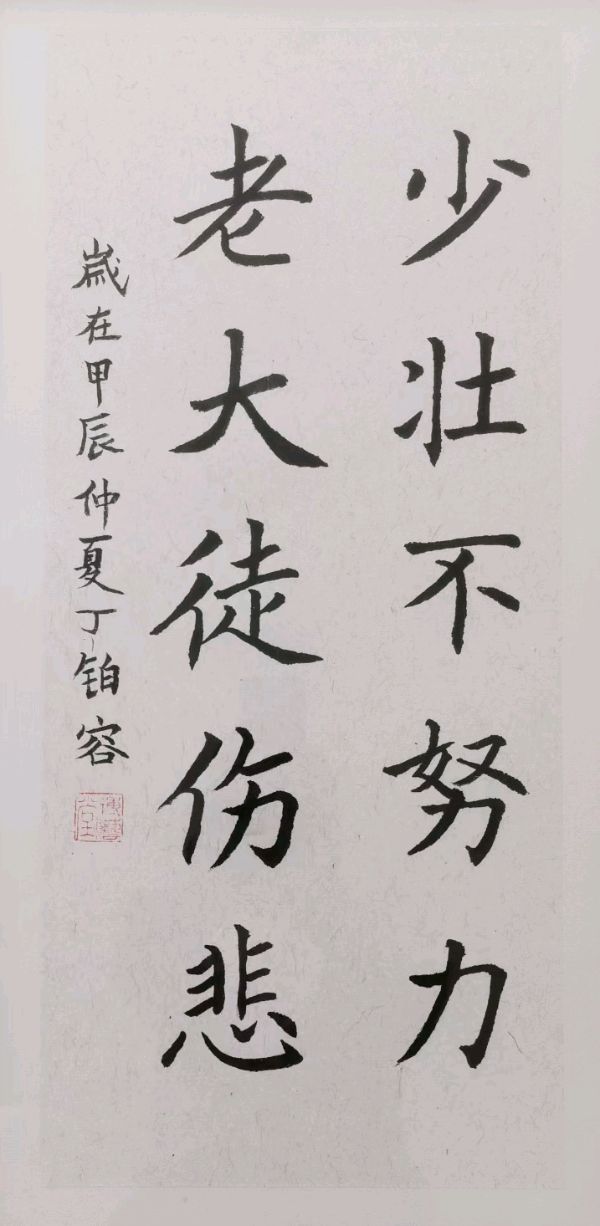 少壮不努力
老大徒伤悲
岁在甲辰仲夏丁铂容